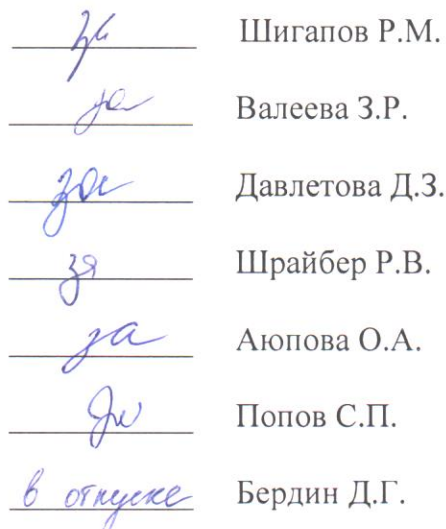 за Шигапов Р.М.
за Валеева З.Р.
за Давлетова Д.З.
за Шрайбер Р.В.
за Аюпова О.А.
Попов С.П.
в отпуске Бердин Д.Г.